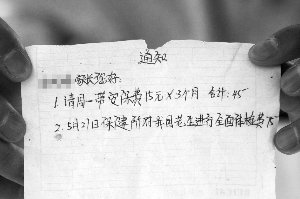 通知
家长您好:
1.请周一带安保费15元×3个月 合计:45
2.5月27日保健所对我园老生进行全面体检费75